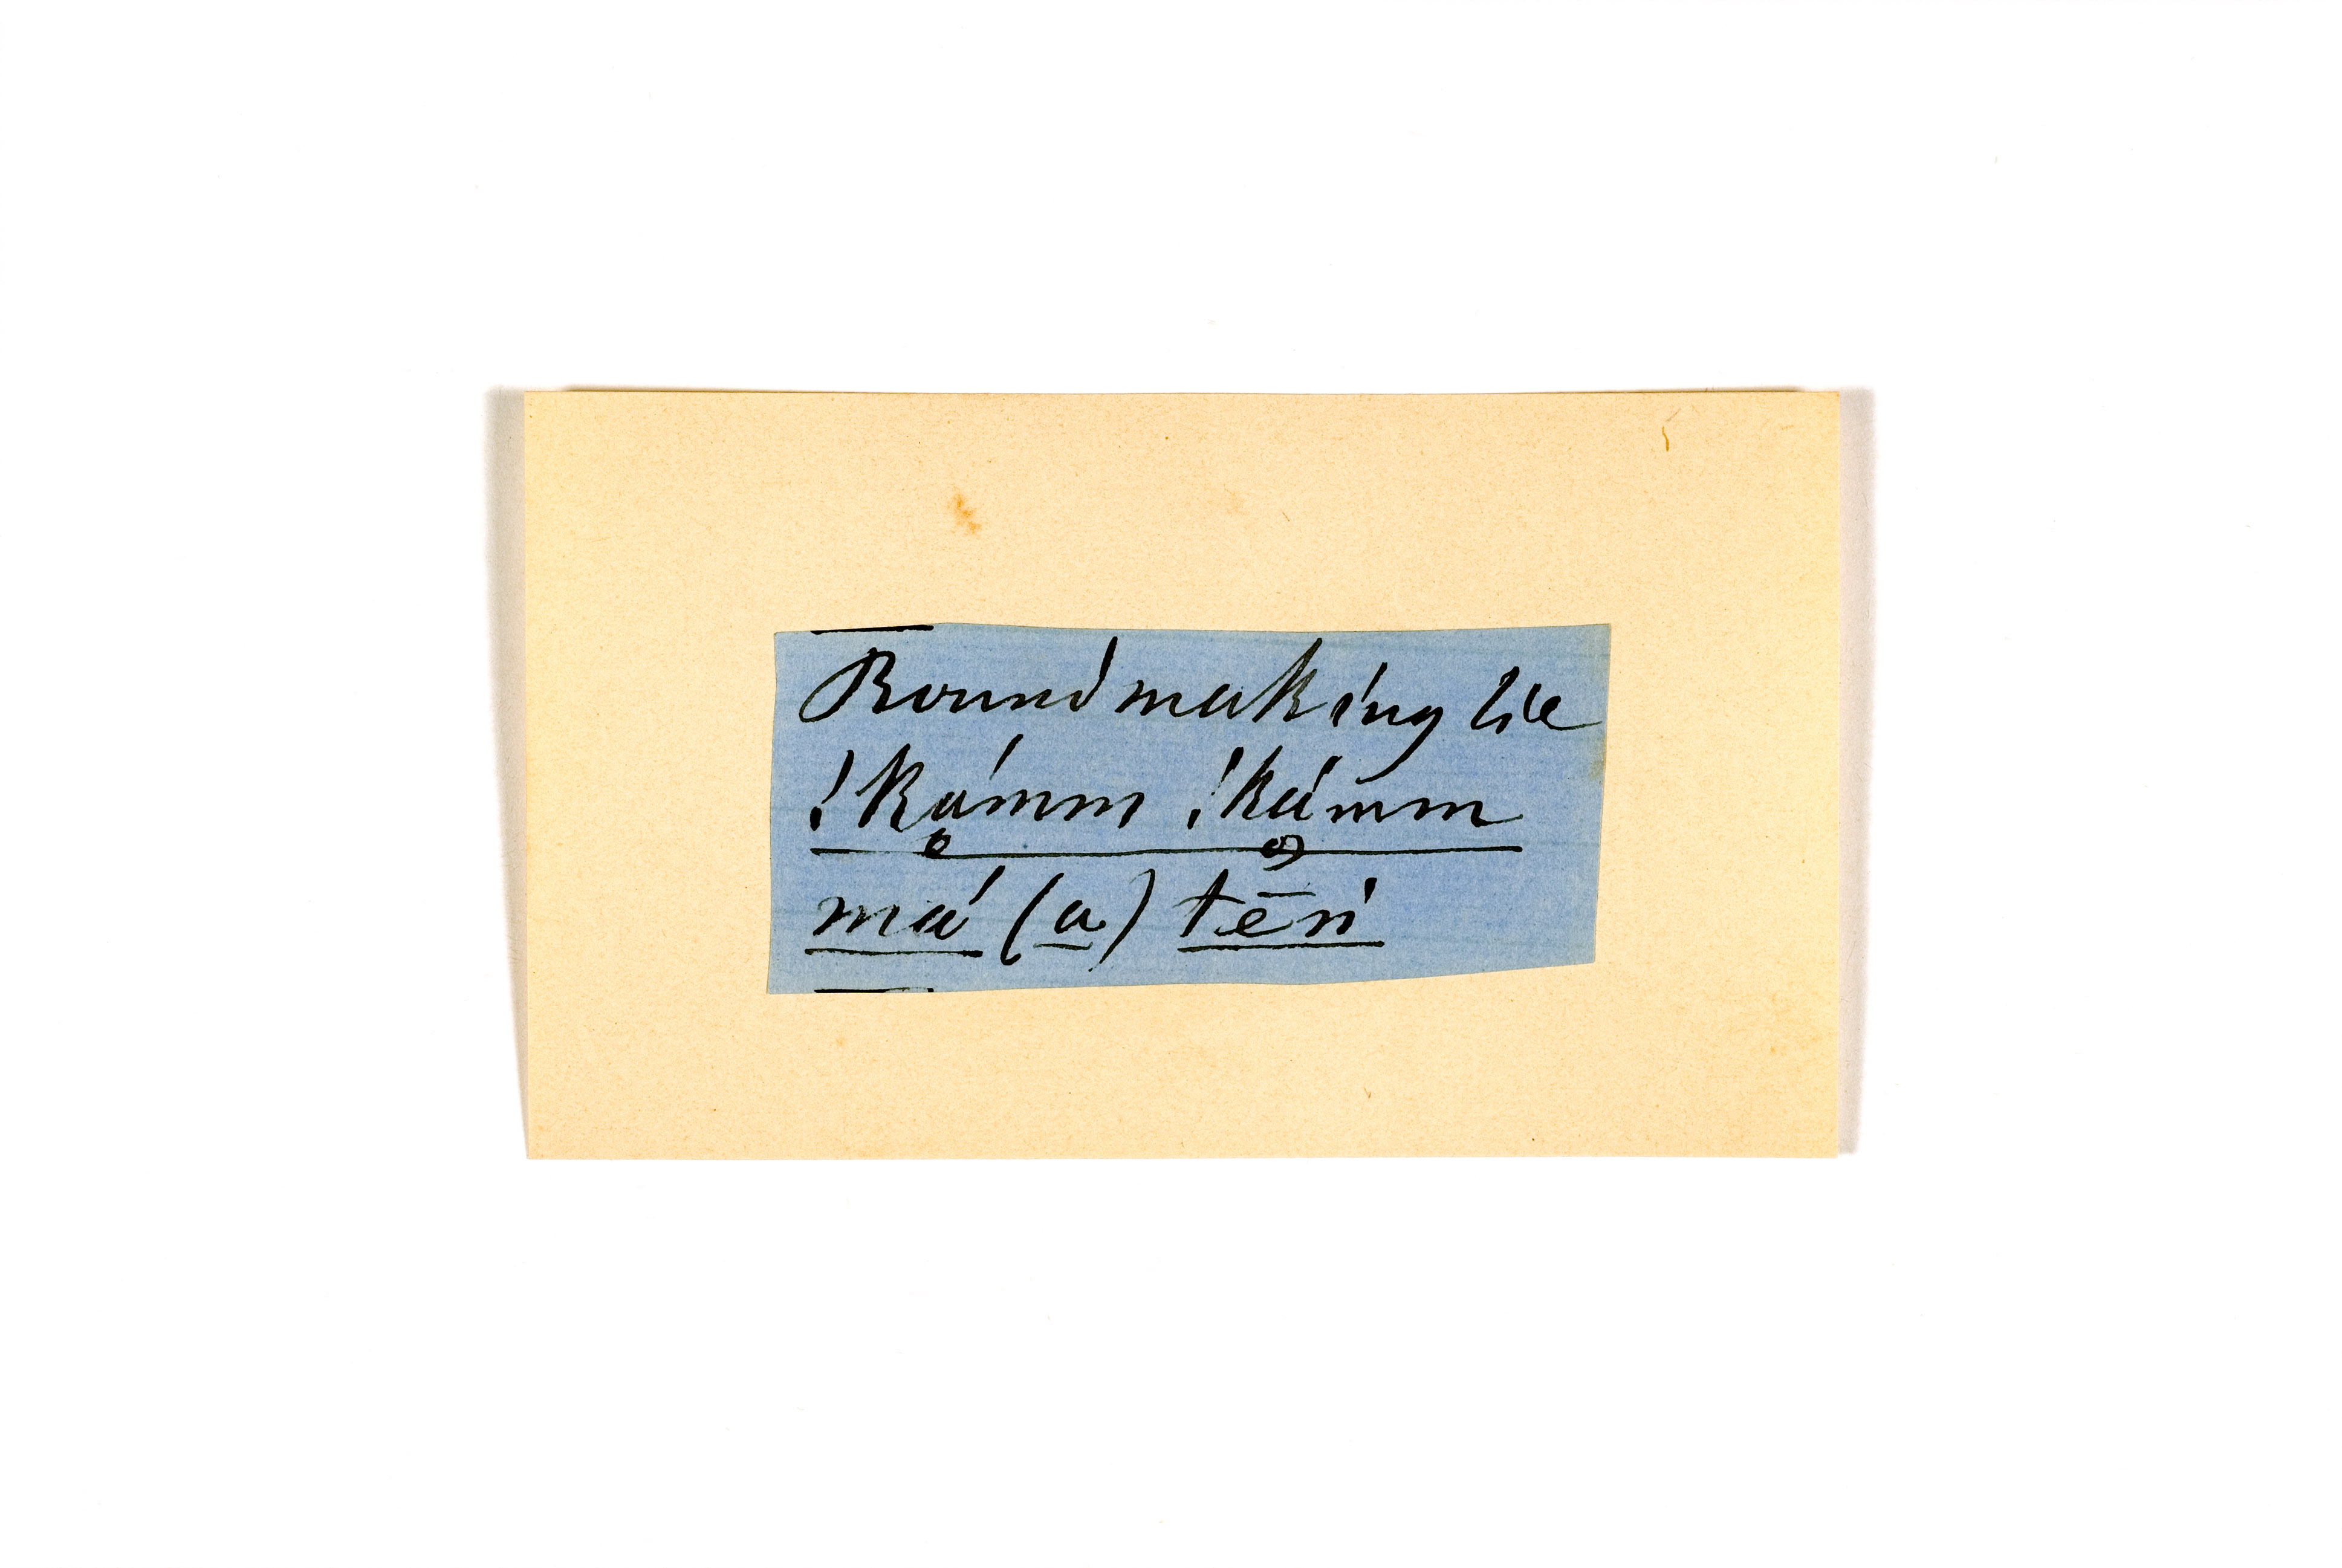 Round making lie
!kámm̥ !kámm̥
má (a) tēn